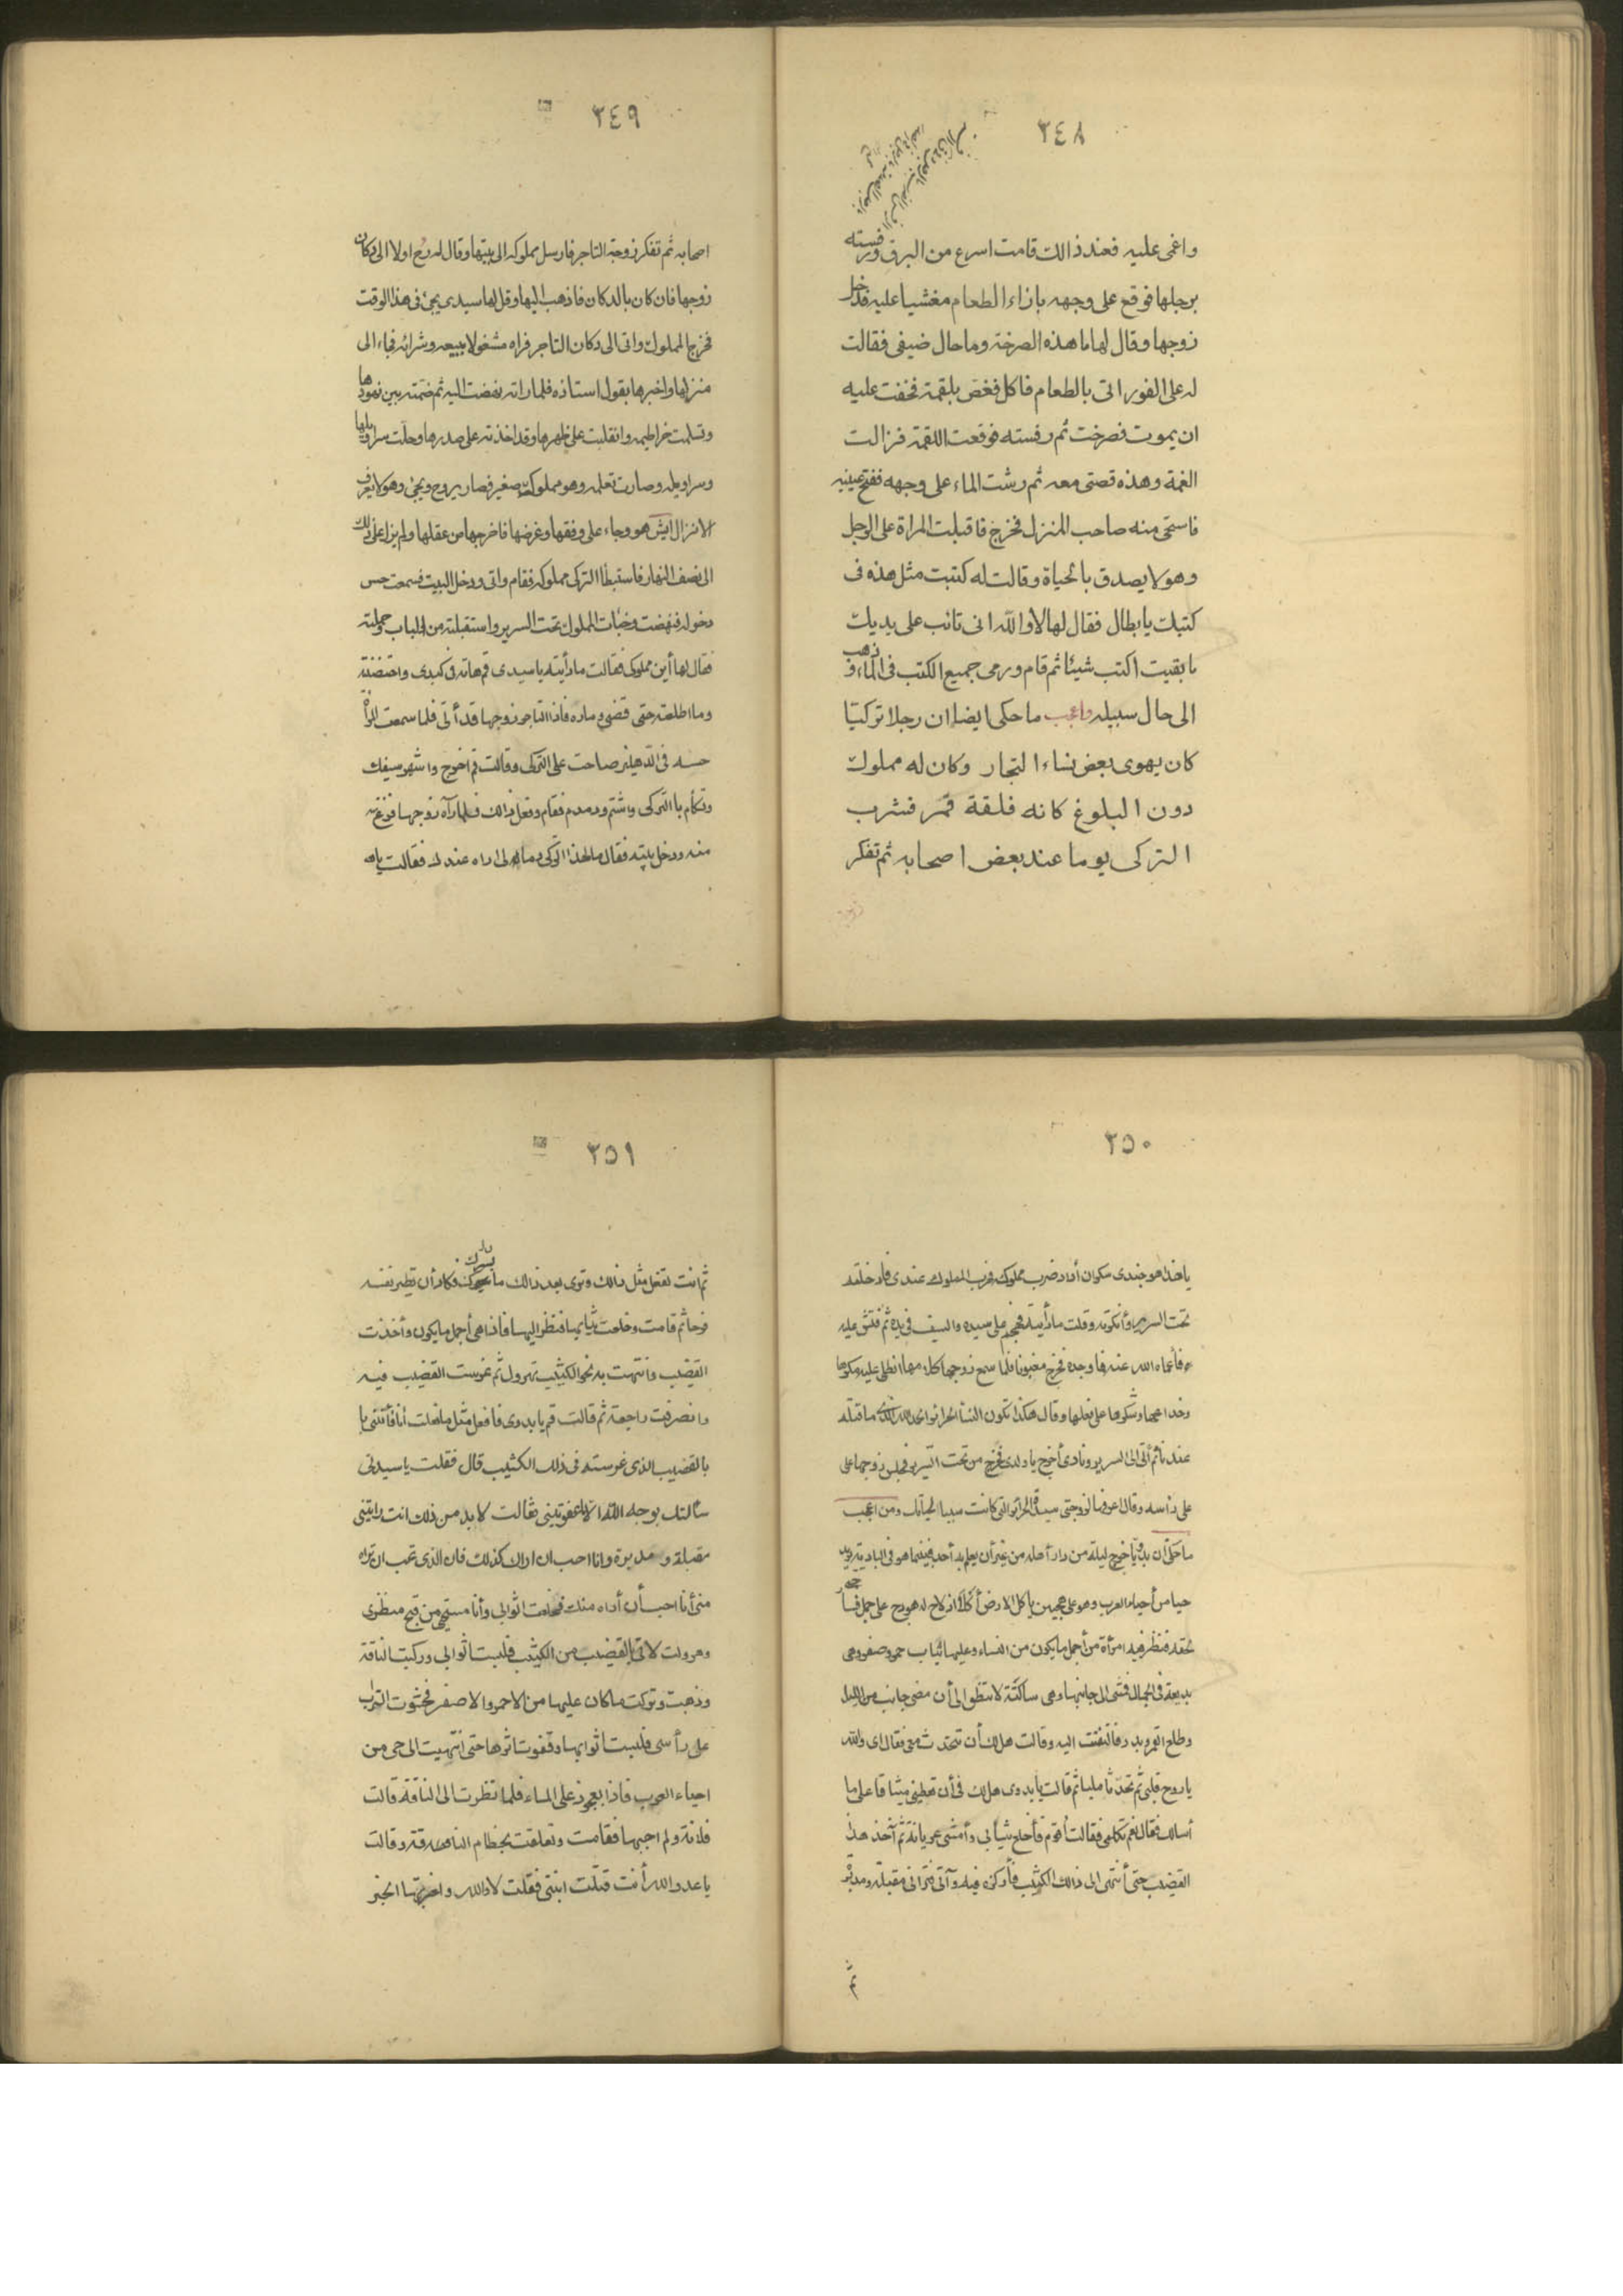 ٣٤٨
واغمى عليه فعند ذالك قامت اسرع من البرق ورفسته
برجلها فوقع على وجهه بازاء الطعام مغشيا عليه فدخل
زوجها وقال لها ما هذه الصرخة وما حال ضيفى فقالت
له على الفور اتى بالطعام فاكل فغص بلقمة فخفت عليه
ان يموت فصرخت ثم رفسته فوقعت اللقمة فزالت
الغمة وهذه قصتى معه ثم رشت الماء على وجهه ففتح عينيه
فاستحى منه صاحب المنزل فخرج فاقبلت المراة على الرجل
وهو لا يصدق بالحياة وقالت له كتبت مثل هذه فى
كتبك يا بطال فقال لها لا والله انى تائب على يديك
ما بقيت اكتب شيئا ثم قام ورمى جميع الكتب فى الماء وذهب
الى حال سبيله واعجب ما حكى ايضا ان رجلا تركيا
كان يهوى بعض نساء التجار وكان له مملوك
دون البلوغ كانه فلقة قمر فشرب
التركى يوما عند بعض اصحابه ثم تفكر
٣٤٩
اصحابه ثم تفكر زوجة التاجر فارسل مملوكه الى بيتها وقال له رح اولا الى دكان
زوجها فان كان بالدكان فاذهب اليها وقل لها سيدى يجئ فى هذا الوقت
فخرج المملوك واتى الى دكان التاجر فراه مشغولا ببيعه وشرائه فجاء الى
منزلها واخبرها بقول استاذه فلما راته نهضت اليه ثم ضمته بين نهودها
وانقلبت على ظهرها وقد اخذته على صدرها وحلت سراويلها
وسراويله وصارت تعلمه وهو مملوك صغير فصار يروح ويجئ وهو لا يعرف
الانزال ايش هو وجاء على وفقها وغرضها فاخرجها من عقلها ولم يزل على ذلك
الى نصف النهار فاستبطا التركى مملوكه فقام واتى ودخل البيت فسمعت حس
دخوله فنهضت وخبات المملوك تحت السرير واستقبلته من الباب وحملته
فقال لها أين مملوكى فقالت ما رأيته يا سيدى قم هاته فى كبدى واحتضنته
وما اطلعته حتى قضى مراده فاذا التاجر زوجها قد أتى فلما سمعت المرأة
حسه فى الدهليز صاحت على التركى وقالت قم اخرج واشهر سيفك
وتكلم بالتركى واشتم ودمدم فقام وفعل ذالك فلما رآه زوجها فزع
منه ودخل بيته فقال ما لهذا التركى وما له لى اراه عندك فقالت
٣٥٠
يا هذا هو جندى سكران أراد ضرب مملوكه فهرب المملوك عندى فادخلته
تحت السرير وأنكرته وقلت ما رأيته فهجم على سيده والسيف فى يده ثم فتش عليه
فأعماه الله عنه فما وجده فخرج مغبونا فلما سمع زوجها كلامها انطلى عليه مكرها
وخداعها وشكرها على فعلها وقال هكذا تكون النسا الحرائر والحمد لله الذى ما قتله
عندنا ثم أتى الى السرير ونادى أخرج يا ولدى فخرج من تحت السرير فجلس زوجها على
على رأسه وقال ادعو لزوجتى سيدة الحرائر التى كانت سببا لحياتك ومن اعجب
ما حكى أن بدويا خرج ليلة من دار أهله من غير أن يعلم به أحد فبينما هو فى البادية يريد
حيا من أحياء العرب وهو على هجين يأكل الارض أكلا اذ لاح له هودج على جمل
فنظر فيه امرأة من أجمل ما يكون من النساء وعليها ثياب حمر وصفر وهى
بديعة فى الجمال فمشى الى جانبها وهى ساكتة لا تنظر الى أن مضى جانب من الليل
وطلع القمر وبدر فالتفتت اليه وقالت هل لك أن تتحدث معى فقال اى والله
يا روح قلبى ثم تحدثا مليا ثم قالت يا بدوى هل لك فى أن تعطينى ميثاقا على ما
أسالك فقال نعم تكلمى فقالت أقوم فأخلع ثيابى وأمشى عريانة ثم آخذ هذا
القضيب حتى أنتهى الى ذالك الكثيب فأركزه فيه وآتى فترانى مقبلة ومدبرة
ثم
٣٥١
ثم انت تفعل مثل ذالك وترى بعد ذالك ما يسرك فكاد أن تطير نفسه
فرحا ثم قامت وخلعت ثيابها فنظر اليها فاذا هى أجمل ما يكون وأخذت
القضيب وانتهت به نحو الكثيب تهرول ثم غرست القضيب فيه
وانصرفت راجعة ثم قالت قم يا بدوى فافعل مثل ما فعلت انا فأتنى يا
بالقضيب الذى غرسته فى ذلك الكثيب قال فقلت يا سيدتى
سألتك بوجه الله الا ما عفوتينى فقالت لا بد من ذلك انت رايتنى
مقبلة ومدبرة وانا احب ان اراك كذلك فان الذى تحب ان تراه
منى أنا احب أن أراه منك فخلعت اثوابى وأنا مستحى من قبح منظرى
وهرولت لاتى بالقضيب من الكثيب فلبست اثوابى وركبت الناقة
وذهبت وتركت ما كان عليها من الاحمر والاصفر فحثوت التراب
على رأسى فلبست اثوابها وقفوت اثرها حتى انتهيت الى حى من
احياء العرب فاذا بعجوز على الماء فلما نظرت الى الناقة قالت
فلانة ولم اجبها فقامت وتعلقت بخطام الناقة وقالت
يا عدو الله أنت قتلت ابنتى فقلت لا والله واخبرتها الخبر